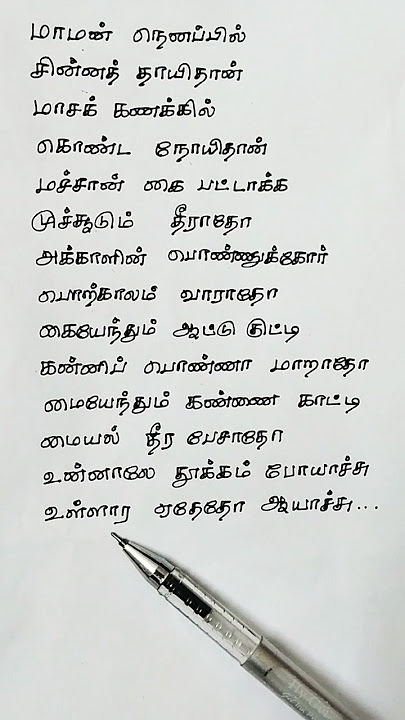 மாமன் நெனப்பில்
சின்னத் தாயிதான்
மாசக் கணக்கில்
கொண்ட நோயிதான்
மச்சான் கை பட்டாக்க
மூச்சூடும் தீராதோ
அக்காளின் பொண்ணுக்கோர்
பொற்காலம் வாராதோ
கையேந்தும் ஆட்டு குட்டி
கன்னிப் பொண்ணா மாறாதோ
மையேந்தும் கண்ணை காட்டி
மையல் தீர பேசாதோ
உன்னாலே தூக்கம் போயாச்சு
உள்ளார ஏதேதோ ஆயாச்சு...